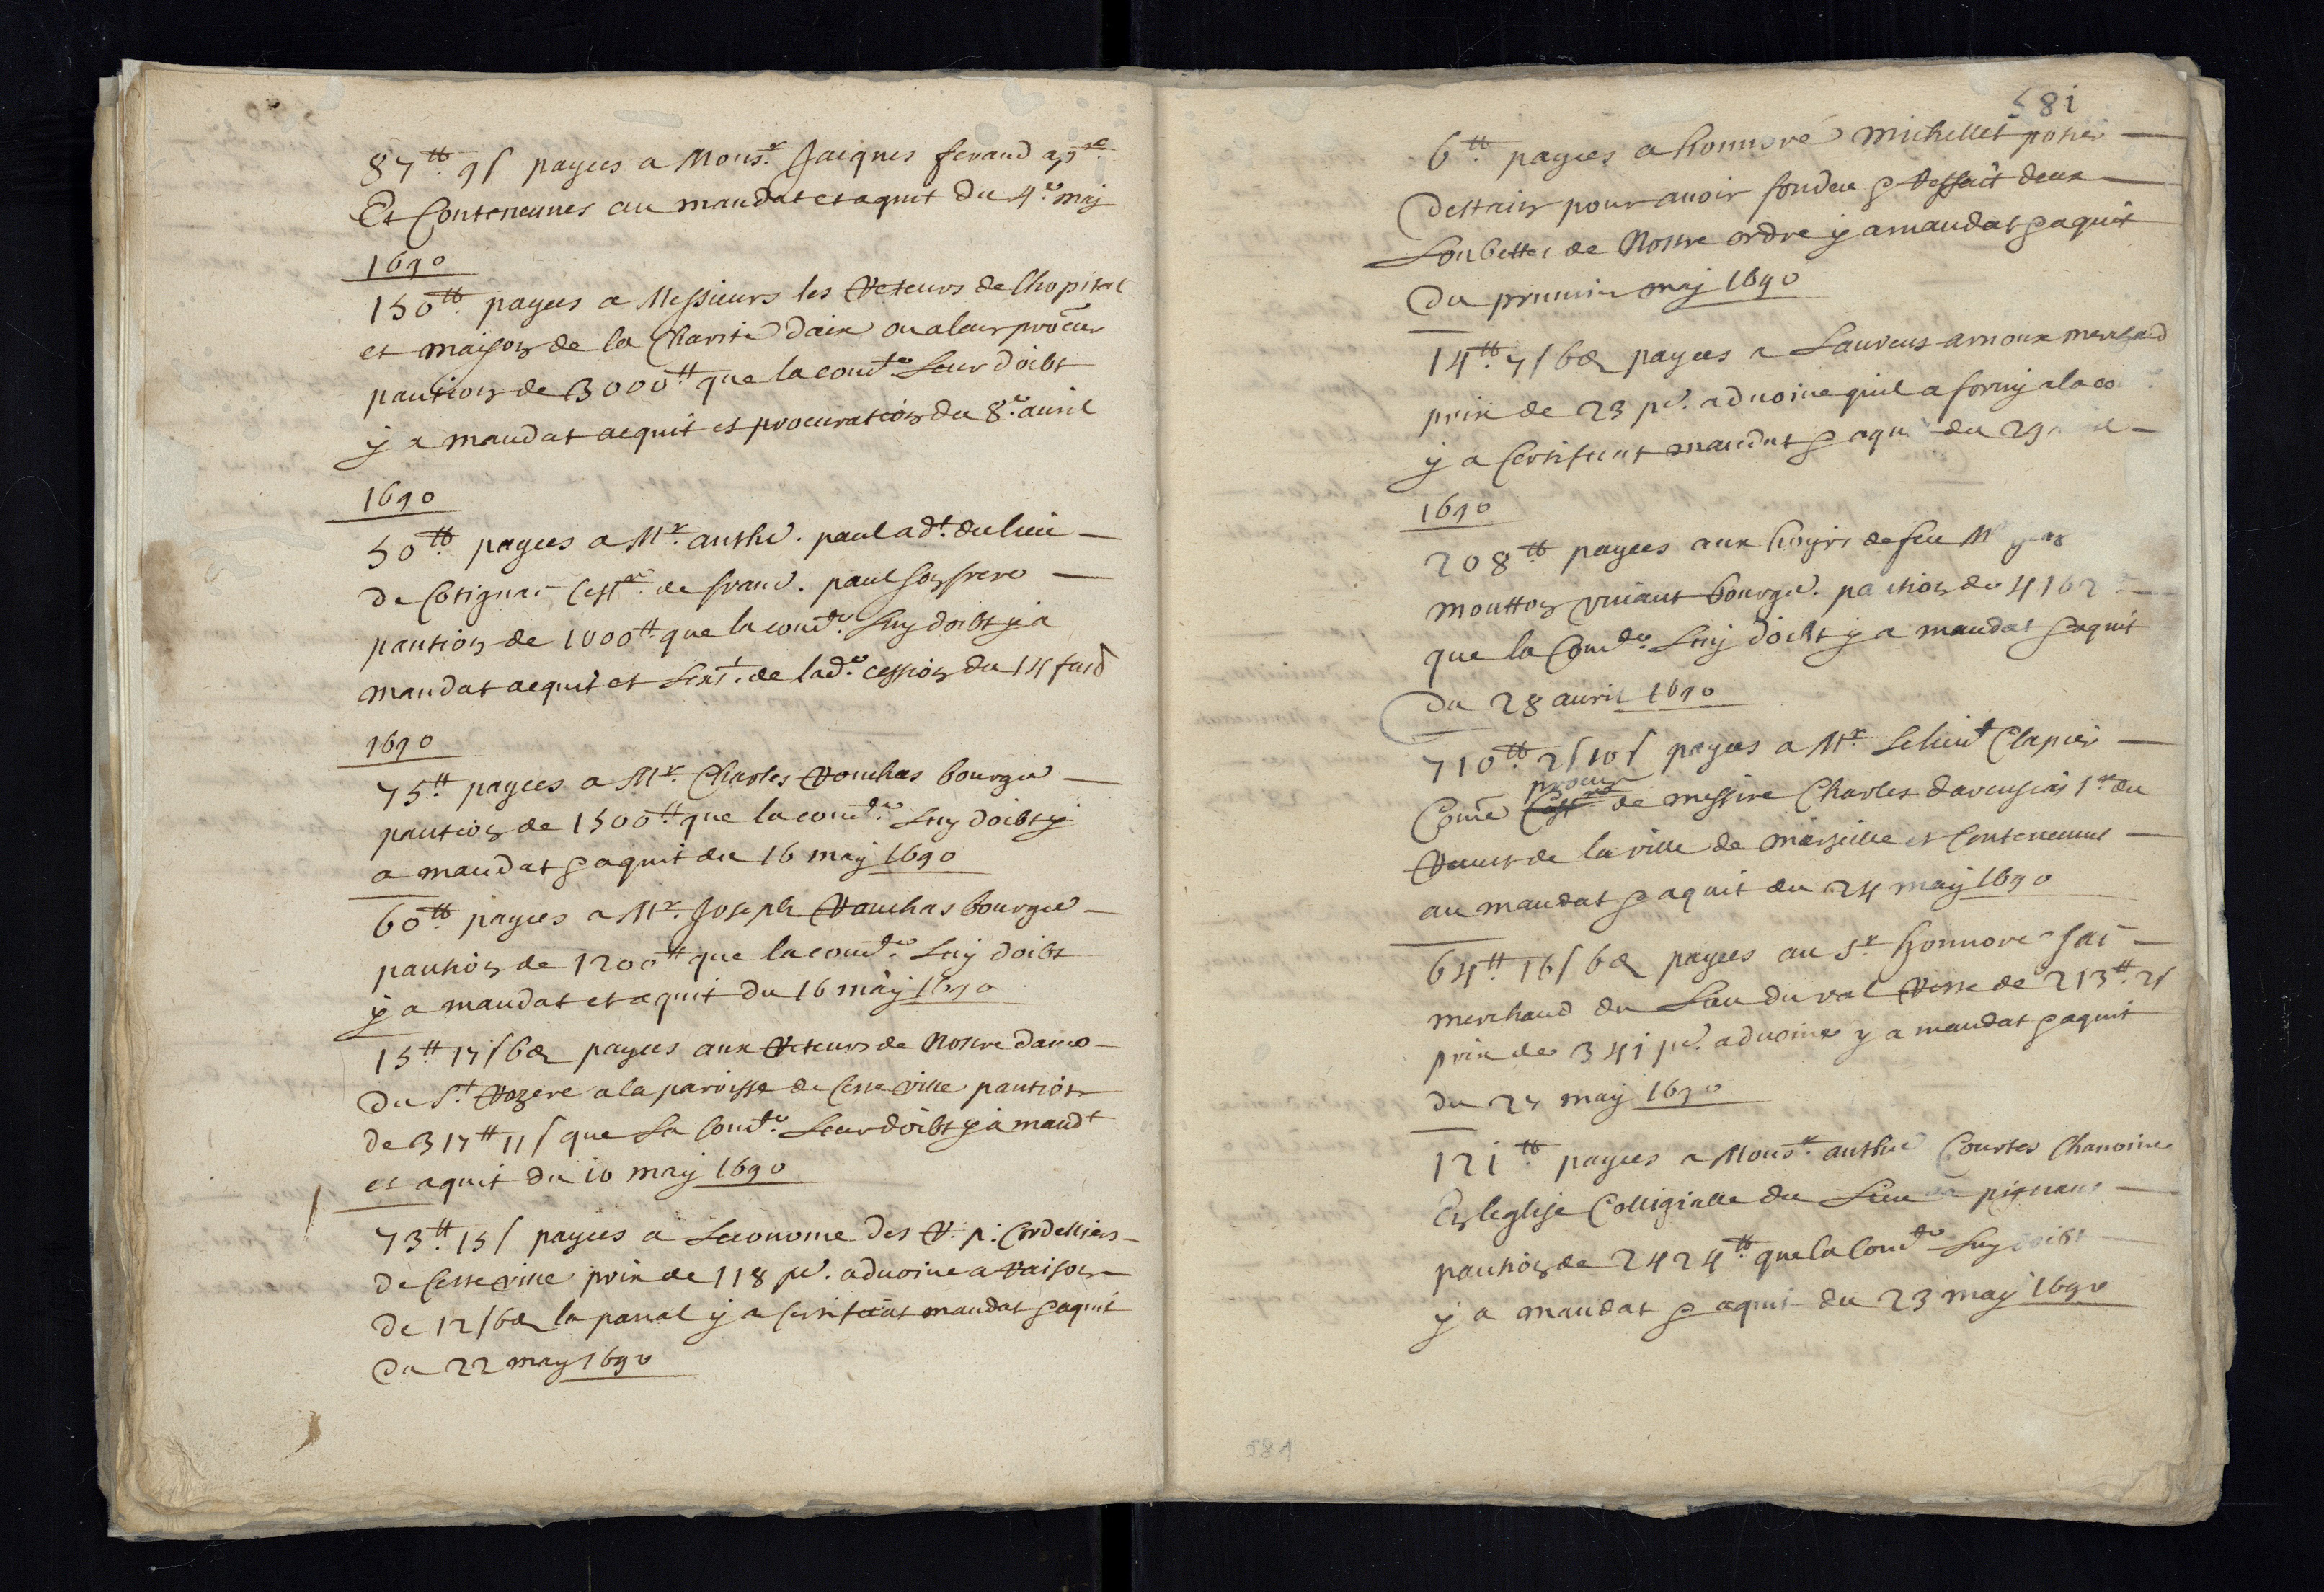 87tt 9s payees a Monsr Jacques feraud aps.re
Es Contencunes au mandat et aquit du 4e may
1690
150tt payees a Messieurs les Recteurs de lhopital
et maison de la Charité daix ou a leur procur
pantion de 3000tt que la comté leur doibt
y a mandat acquit et procuration du 8e auril
1690
50tt payees a Mr anthe. paul adt. du lieu
de Cotignac cessre. de franc. paul son frere
pantion de 1000tt que la comté luy doibt y a
mandat acquit et Ext. de lade. cession du 14 fuid
1690
75tt payees a Mr. Charles Rouchas bourgs
pantion de 1500tt que la comté luy doibt y
a mandat & aquit du 16 may 1690
60tt payees a Mr. Joseph Rouchas bourgs
pantion de 1200tt que la comté luy doibt
y a mandat et aquit du 16 may 1690
15tt 17s 6d payees aux Recteurs de Nostre dame
du St Rozere a la parroisse de Cette ville pantion
de 317tt 11s que la Comté leur doibt y a mandt
et aquit du 10 may 1690
73tt 15s payees a Leconome des R. p. Cordelliers
de Cette ville prix de 118 px. aduoine a raison
de 12s 6d la panal y a certificat mandat & aquit
du 22 may 1690
581
6tt payees a honnoré michellet potier
destain pour auoir fondeu & reffait deux
Coubettes de Nostre ordre y a mandat & aquit
du prumier may 1690
14tt 7s 6d payees a Laurens arnoux merchand
prix de 23 px. aduoine quil a forny a la co
y a Certificat mandat & aqui du 29
1690
208tt payees aux hoyrs de feu Mr jean
moutton viuant bourgs. pantion de 4162
que la Comté luy doibt y a mandat & aquit
du 28 auril 1690
710tt 2s 10s payees a Mr. Lelieut Clapier
procur
Comē Cessre de messire Charles darcussias sr du
Reuest de la ville de marseille et Conteneunes
au mandat & aquit du 24 may 1690
64tt 16s 6d payees au Sr honnore Jai
merchand du Lieu du val Reste de 213tt 2s
prix de 341 px. aduoine y a mandat & aquit
du 24 may 1690
121tt payees a Monsr. anthe Courtes Chanoine
En leglise Collegialle du Lieu de pignans
pantion de 2424tt que la Comté luy doibt
y a mandat & aquit du 23 may 1690
581